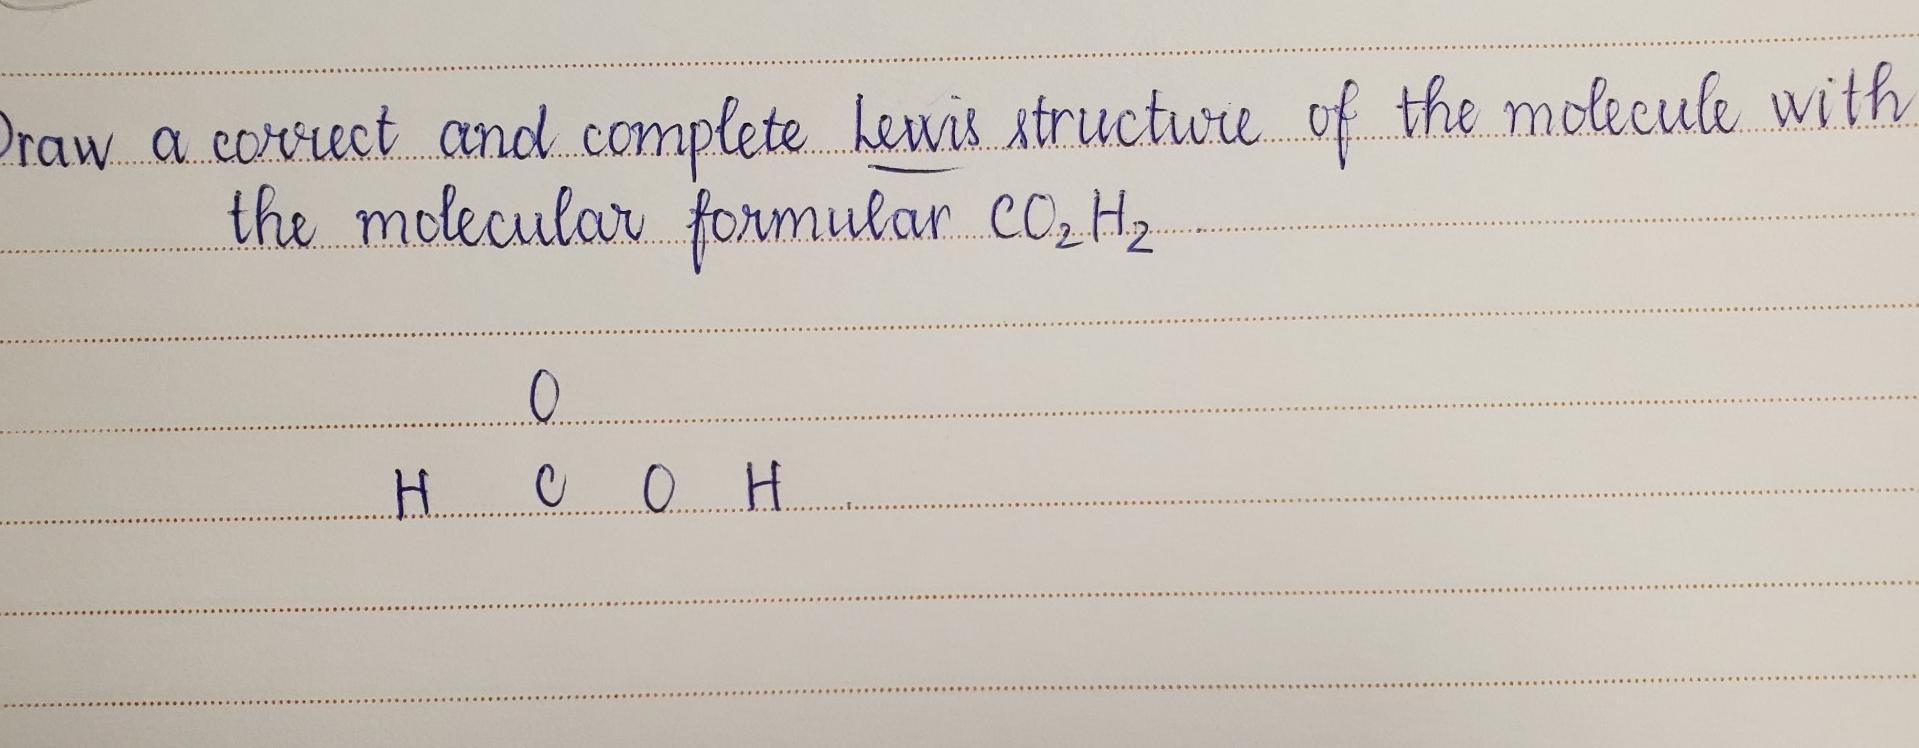 Draw a correct and complete Lewis structure of the molecule with
the molecular formular CO₂H₂
O
H C O H